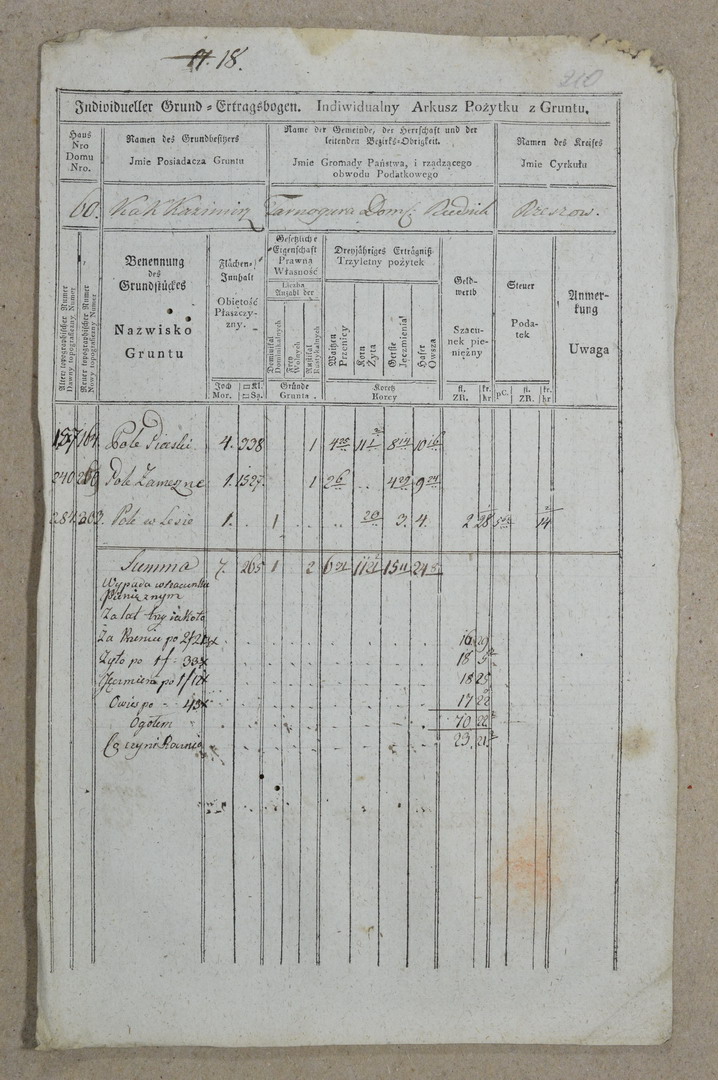 18.
210
Individueller Grund-Ertragsbogen. Indiwidualny Arkusz Pożytku z Gruntu.
Haus Nro Domu Nro.
Namen des Grundbesitzers
Jmie Posiadacza Gruntu
Name der Gemeinde, der Herrschaft und der
leitenden Bezirks-Obrigkeit.
Jmie Gromady Państwa, i rządzącego
obwodu Podatkowego
Namen des Kreises
Jmie Cyrkułu
60. Kak Kazimirz Tarnogura Dom: Rudnik Rzeszow.
Alter topographischer Numer
Dawny topograficzny Numer
Neuer topographischer Numer
Nowy topograficzny Numer
Benennung
des
Grundstückes
Nazwisko
Gruntu
Flächen-
Innhalt
Obiętość
Płaszczy-
zny.
Joch Mor. □Kl. □Są.
Gesetzliche
Eigenschaft
Prawna
Własność
Liczba
Anzahl der
Dominikal
Dominikalnych
Frey
Wolnych
Rustikal
Rustykalnych
Gründe
Grunta
Dreyjähriges Erträgniß
Trzyletny pożytek
Waitzen
Przenicy
Korn
Zyta
Gerste
Jęczmienia
Hafer
Owsza
Koretz
Korcy
Geld-
werth
Szacu-
nek pie-
niężny
fl. ZR. kr. hr
Steuer
Poda-
tek
pC. fl. ZR. kr. hr
Anmer-
kung
Uwaga
164. Pole Piaski 4. 338 1
240 Pole Zamezne 1. 1527. 1
284. 303. Pole w Lesie 1. 1 3. 4. 2 28 14
Summa 7. 265 1 2
Wypada w szacunku
Pieniężnym
Za lat trzy iako to
Za Przenice po 16 29
Zyto po 18 5
Jęczmień po 18 25
Owies po 17 22
Ogołem 70 22
Co czyni Rocznie 23. 21